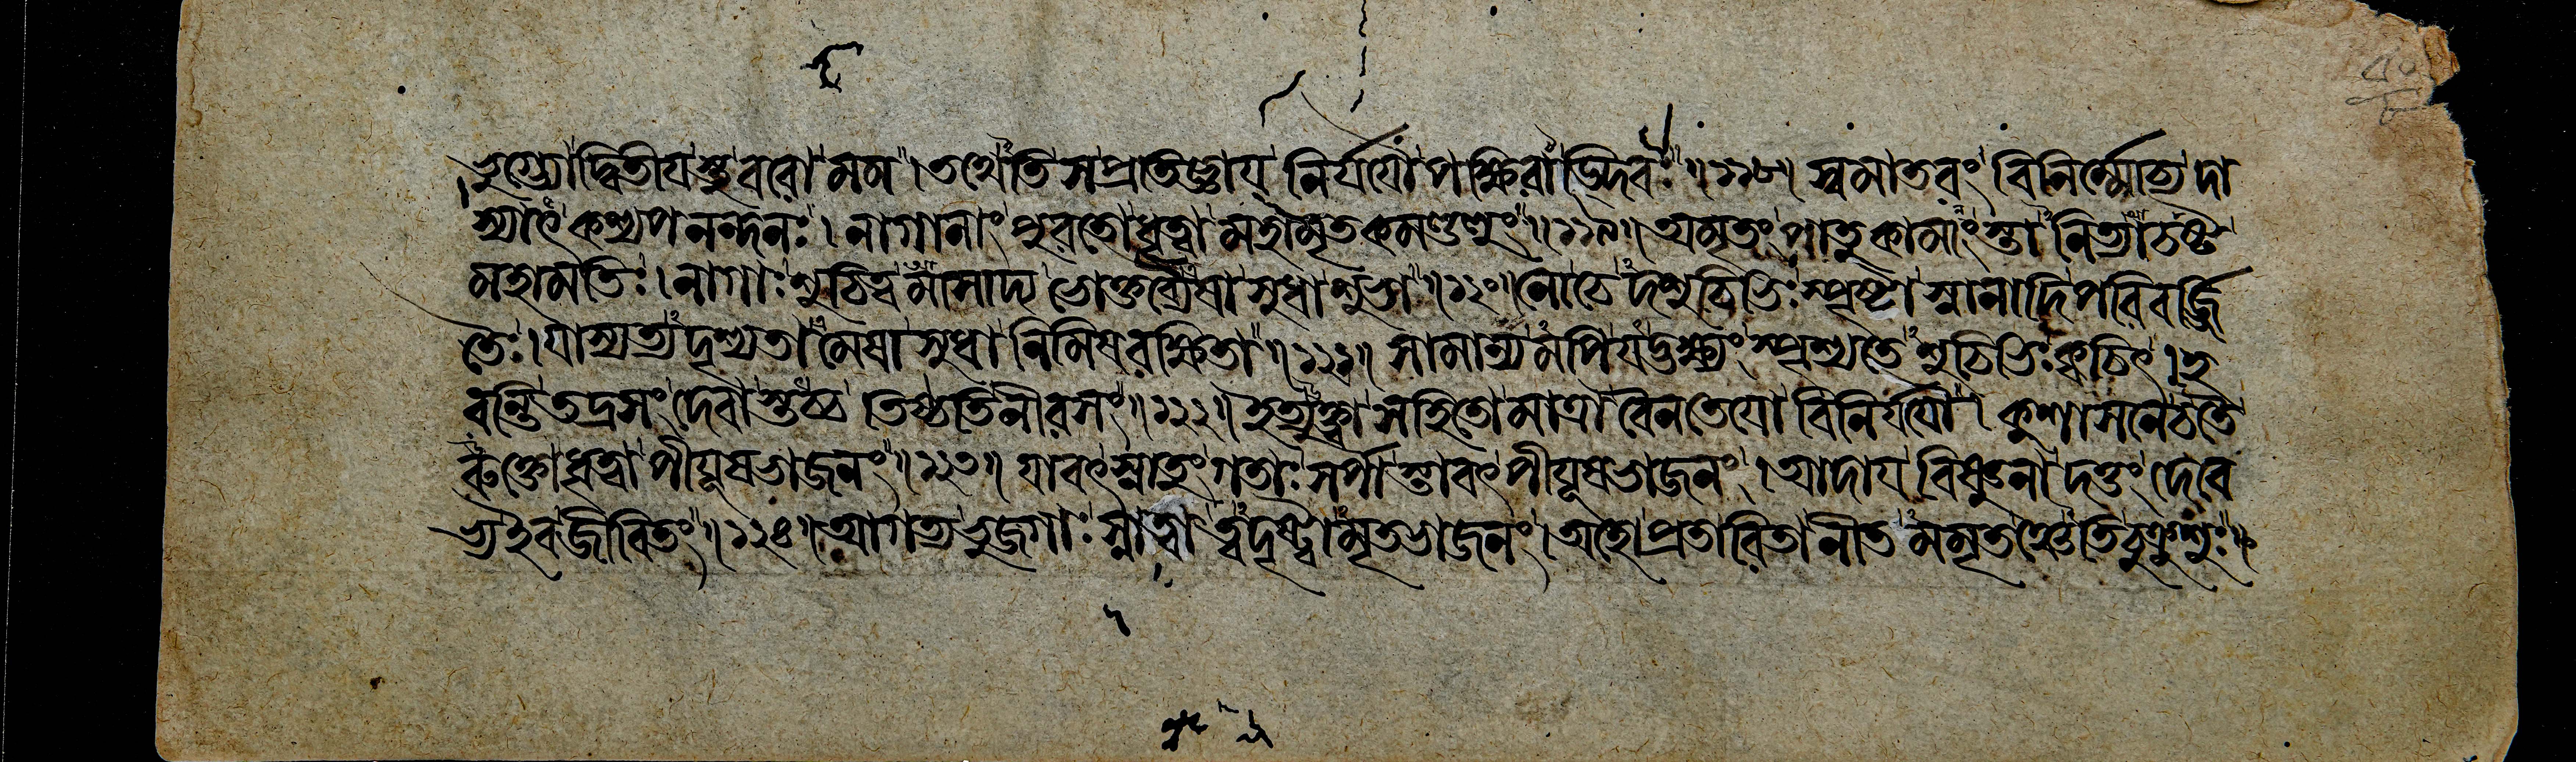 ভুগ্ন্যোদ্বিতীযস্তু বরো মম । তথেতি স প্রতিজ্ঞায নির্যযৌ পক্ষিরাড্দিবঃ ॥ ১১৮ ॥ স্বমাতরং বিনির্ম্মোত্র্য দা
স্যাৎ কশ্যপনন্দনঃ । নাগানাং পুরতো ধৃত্বা মহামৃতকমণ্ডলুং ॥ ১১৯ ॥ অমৃতং পাতুকামাংস্তানিত্যাচষ্ট
মহামতিঃ । নাগাঃ শুচিত্বমাসাদ্য ভোক্তব্যৈষা সুধা শুভা ॥ ১২০ ॥ নোচেদশুচিভিঃ স্পৃষ্টা স্নানাদিপরিবর্জ্জি
তৈঃ । যাস্যত্যদৃশ্যতামেষা সুধানিমিষরক্ষিতা ॥ ১২১ ॥ সামান্যমপি যদ্ভক্ষ্যং স্পৃশ্যতে শুচিভিঃ ক্বচিৎ । হ
রন্তি তদ্রসং দেবাস্তচ্চ তিষ্ঠতি নীরসং ॥ ১২২ ॥ ইত্যুক্ত্বা সহিতো মাত্রা বৈনতেযো বিনির্যযৌ । কুশাসনে চ তৈ
রুক্তো ধৃত্বা পীযূষভাজনং ॥ ১২৩ ॥ যাবৎ স্নাতুং গতাঃ সর্পাস্তাবৎ পীযূষভাজনং । আদায বিষ্ণুনা দত্তং দেবে
ভ্য ইব জীবিতং ॥ ১২৪ ॥ আগত্য ভুজগাঃ স্নাত্বা ত্বদৃষ্ট্বামৃতভাজনং । অহো প্রতারিতা নীতমমৃতন্ত্বিতি চুক্রুশুঃ ॥